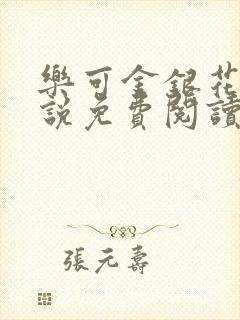 樂可金銀花
說免費閱讀
張元壽